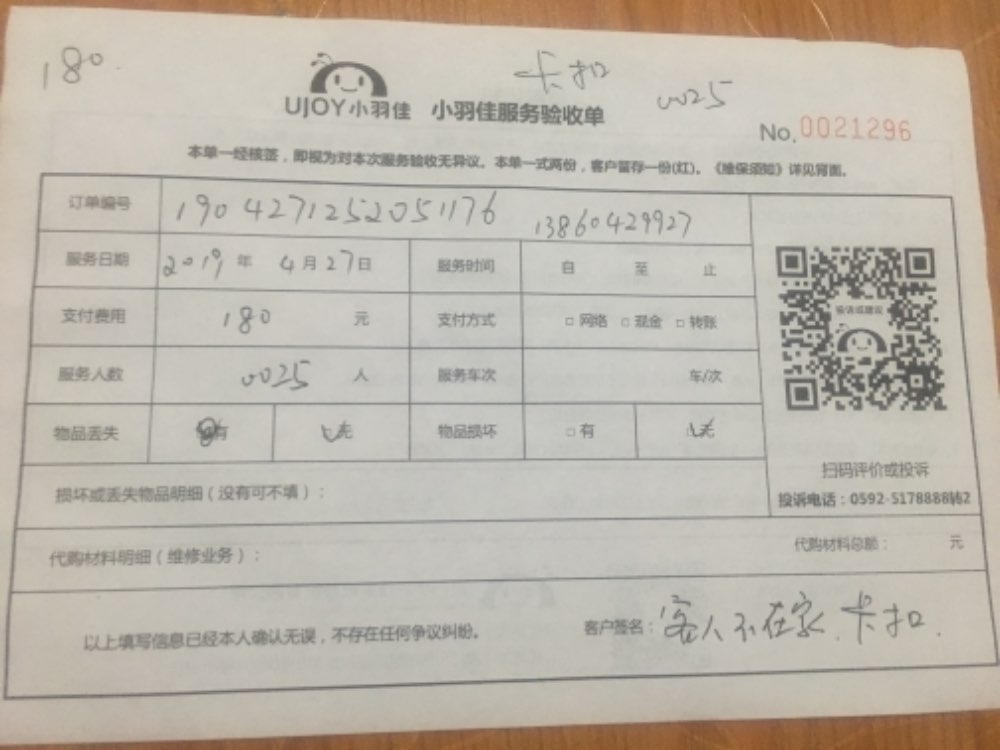 180
卡扣
0025
UJOY小羽佳 小羽佳服务验收单
No. 0021296
本单一经核签，即视为对本次服务验收无异议。本单一式两份，客户留存一份(红)。《维保须知》详见背面。
订单编号 1904271252051176 13860429927
服务日期 2019年 4月27日 服务时间 自 至 止
支付费用 180 元 支付方式 □ 网络 □ 现金 □ 转账
服务人数 0025 人 服务车次 车/次
物品丢失 有 无 物品损坏 □ 有 无
投诉或建议
扫码评价或投诉
投诉电话：0592-5178888转2
损坏或丢失物品明细（没有可不填）：
代购材料明细（维修业务）： 代购材料总额： 元
以上填写信息已经本人确认无误，不存在任何争议纠纷。 客户签名：客人不在家.卡扣.